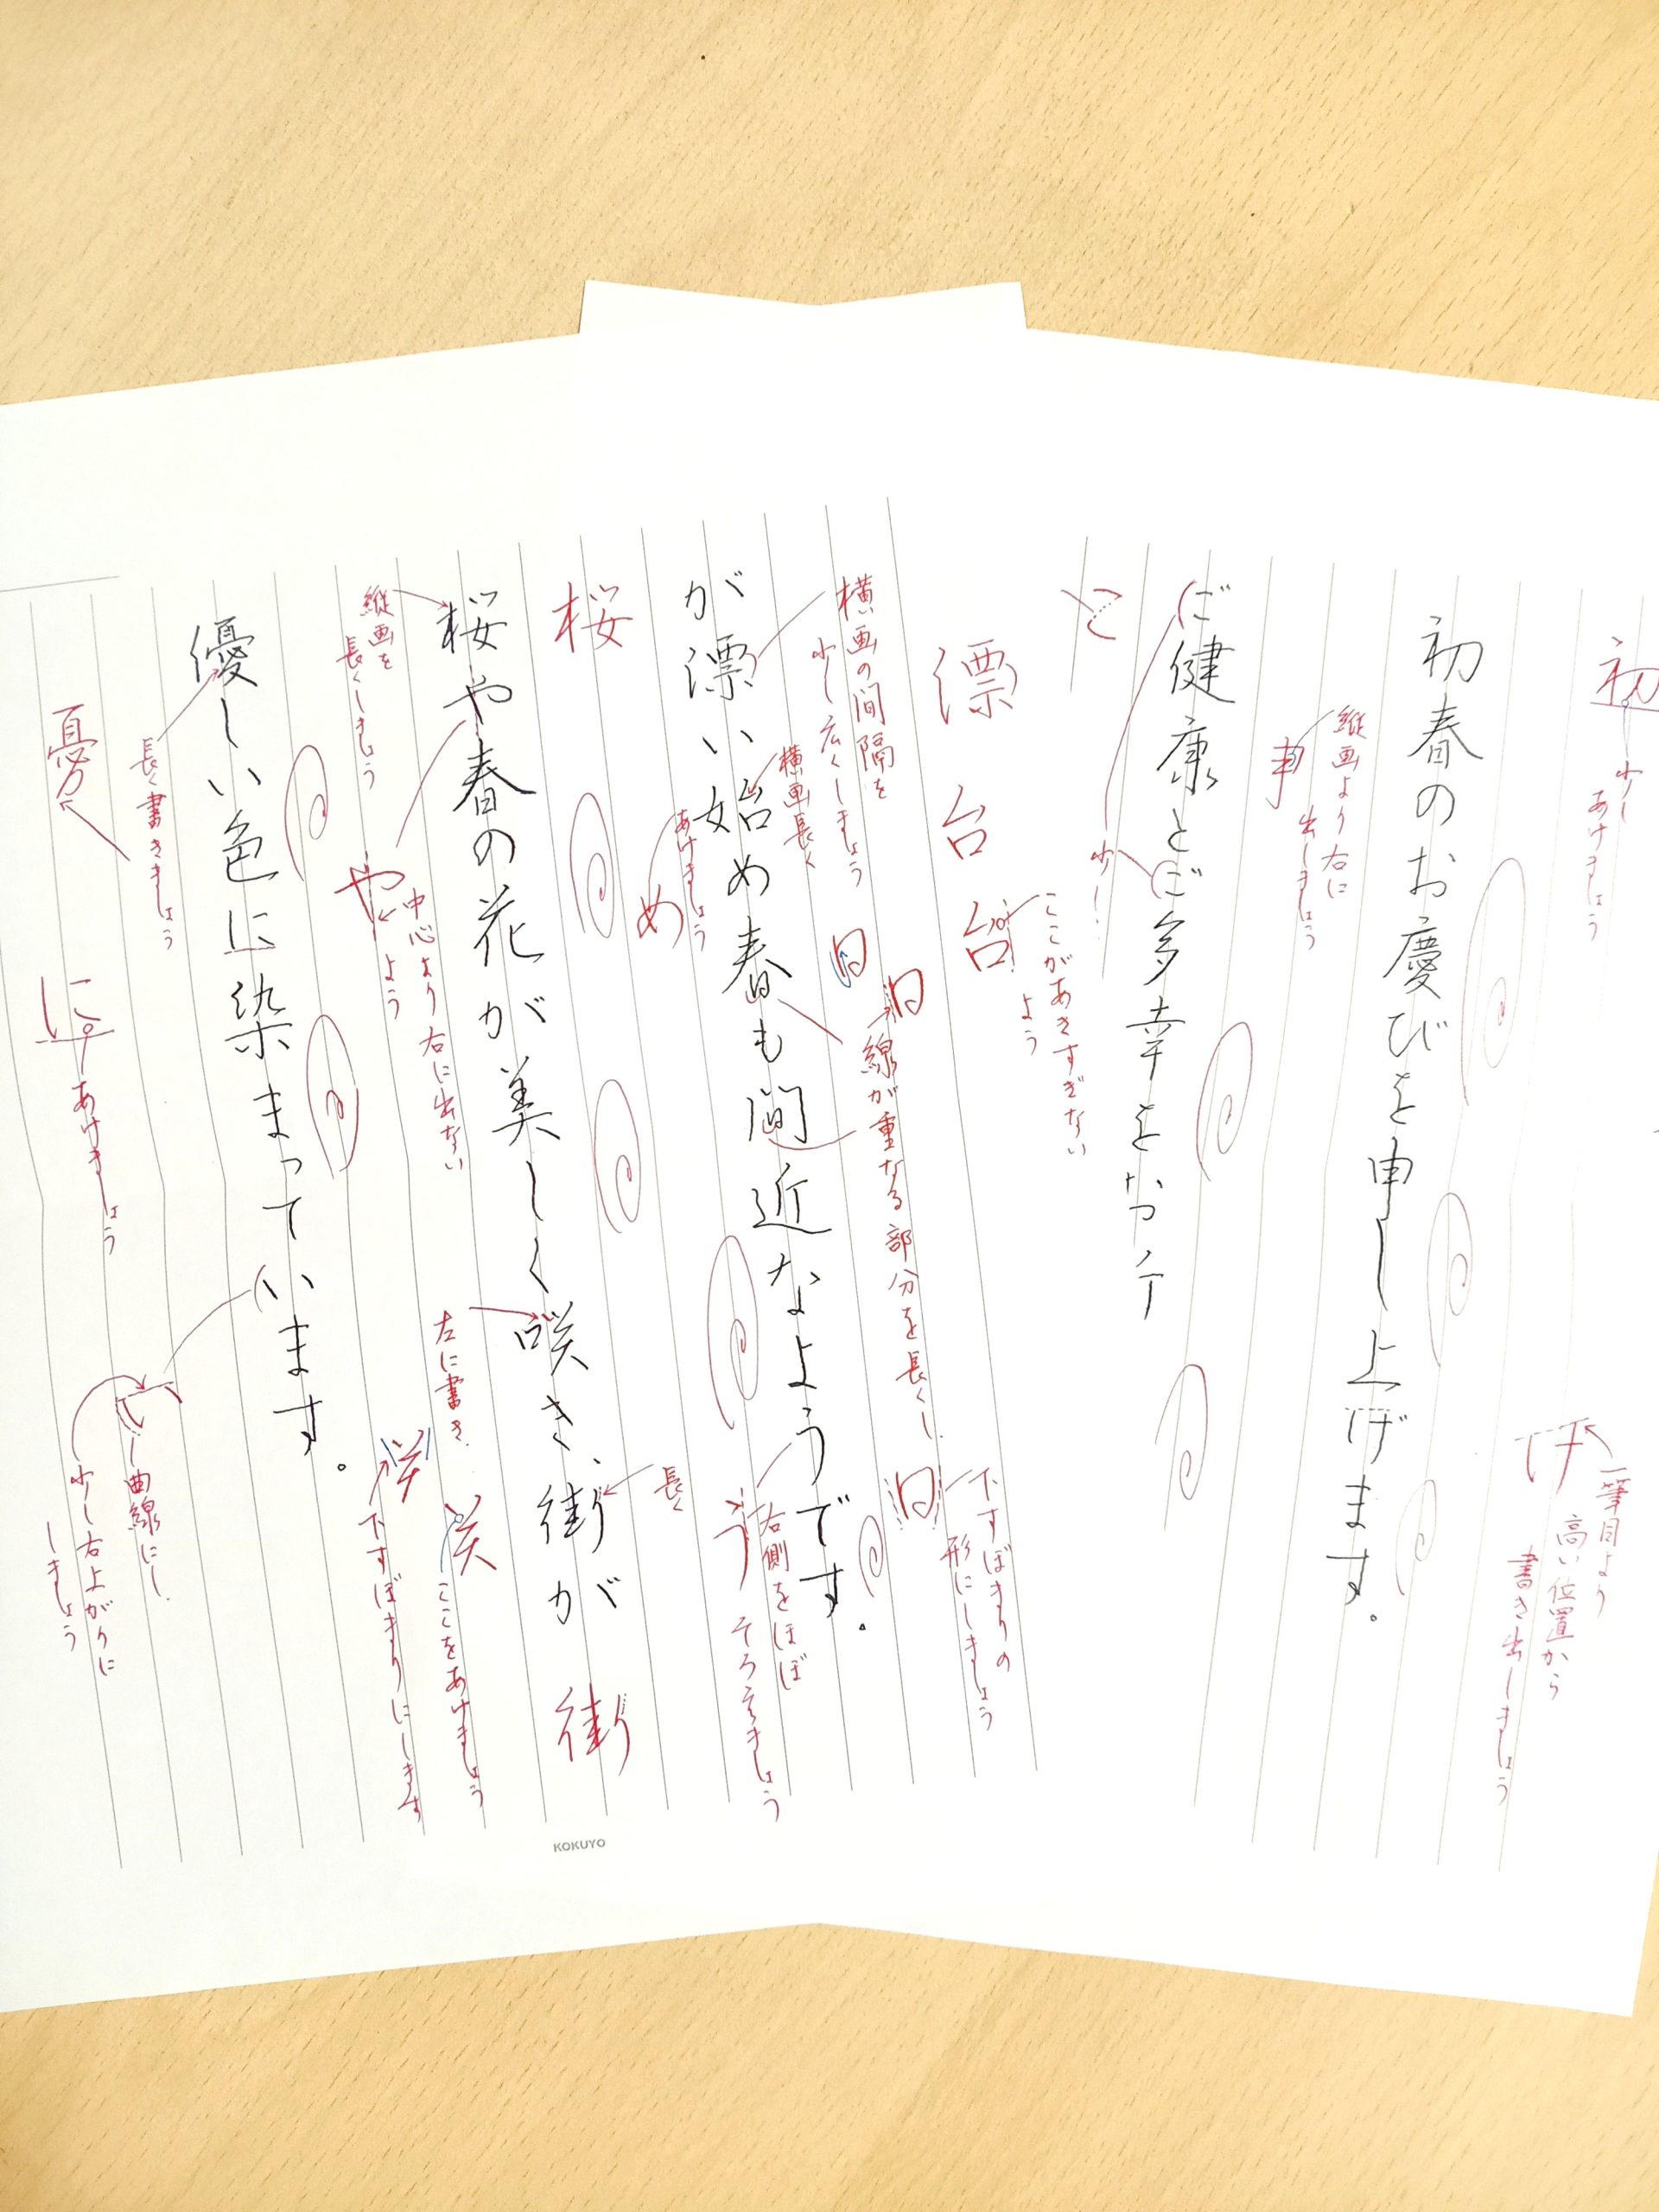 初
少し
あけましょう
一筆目より
高い位置から
書き出しましょう
げ
初春のお慶びを申し上げます。
縦画より右に
出しましょう
ご健康とご多幸を
少し
ご
漂
台
台
ここがあきすぎない
よう
横画の間隔を
少し広くしましょう
横画長く
あけましょう
め
日
日
線が重なる部分を長くし
日
下すぼまりの
形にしましょう
が漂い始め春も間近なようです。
う
右側をほぼ
そろえましょう
桜
桜や春の花が美しく咲き、街が
長く
街
縦画を
長くしましょう
や
中心より右に出ない
よう
左に書き
ここをあけましょう
下すぼまりにします
優しい色に染まっています。
長く書きましょう
憂
に
あけましょう
い
曲線にし
少し右上がりに
しましょう
KOKUYO